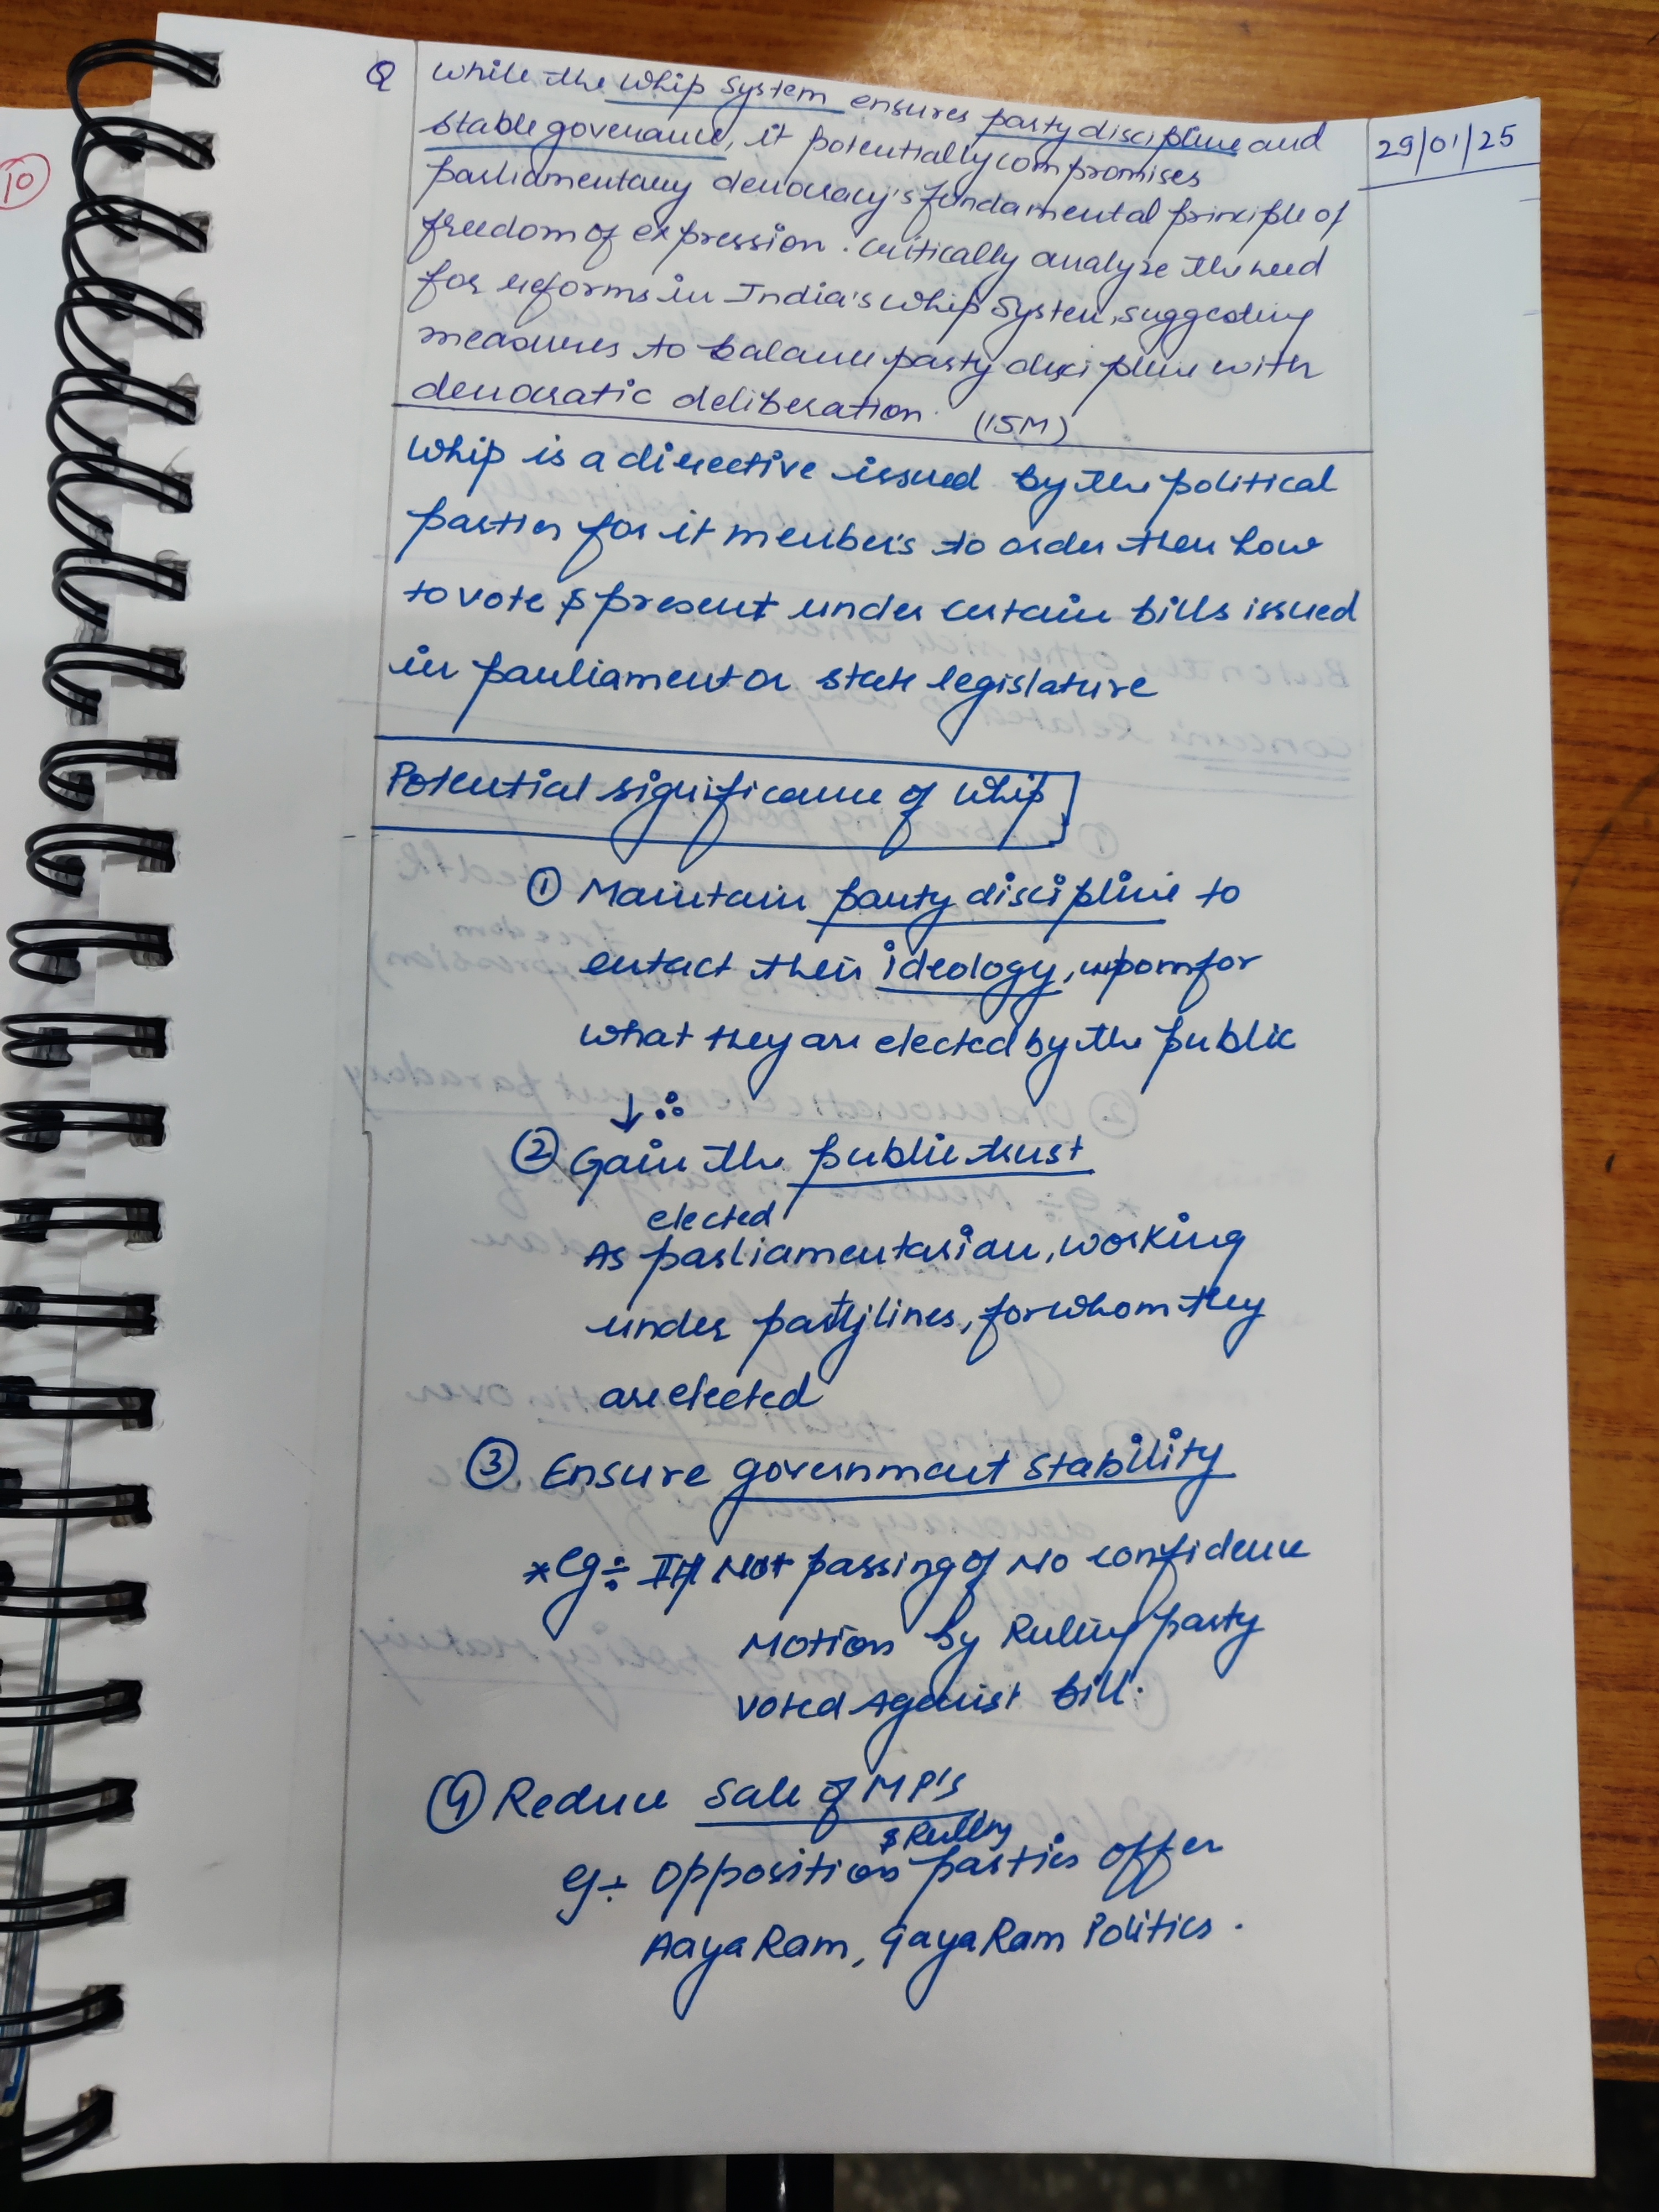 10
29/01/25
Q While the Whip System ensures party discipline and
stable governance, it potentially compromises
parliamentary democracy's fundamental principle of
freedom of expression. Critically analyze the need
for reforms in India's Whip System, suggesting
measures to balance party discipline with
democratic deliberation. (15M)
Whip is a directive issued by the political
parties for it members to order them how
to vote & present under certain bills issued
in parliament or state legislature
Potential significance of Whip
① Maintain party discipline to
entact their ideology, upon for
what they are elected by the public
↓ ∴
② Gain the public trust
elected
As parliamentarian, working
under party lines, for whom they
are elected
③ Ensure government stability
* Eg ÷ Not passing of No confidence
Motion by Ruling party
voted Against bill.
④ Reduce Sale of MP's
& Ruling
Eg ÷ Opposition parties offer
Aaya Ram, Gaya Ram Politics.